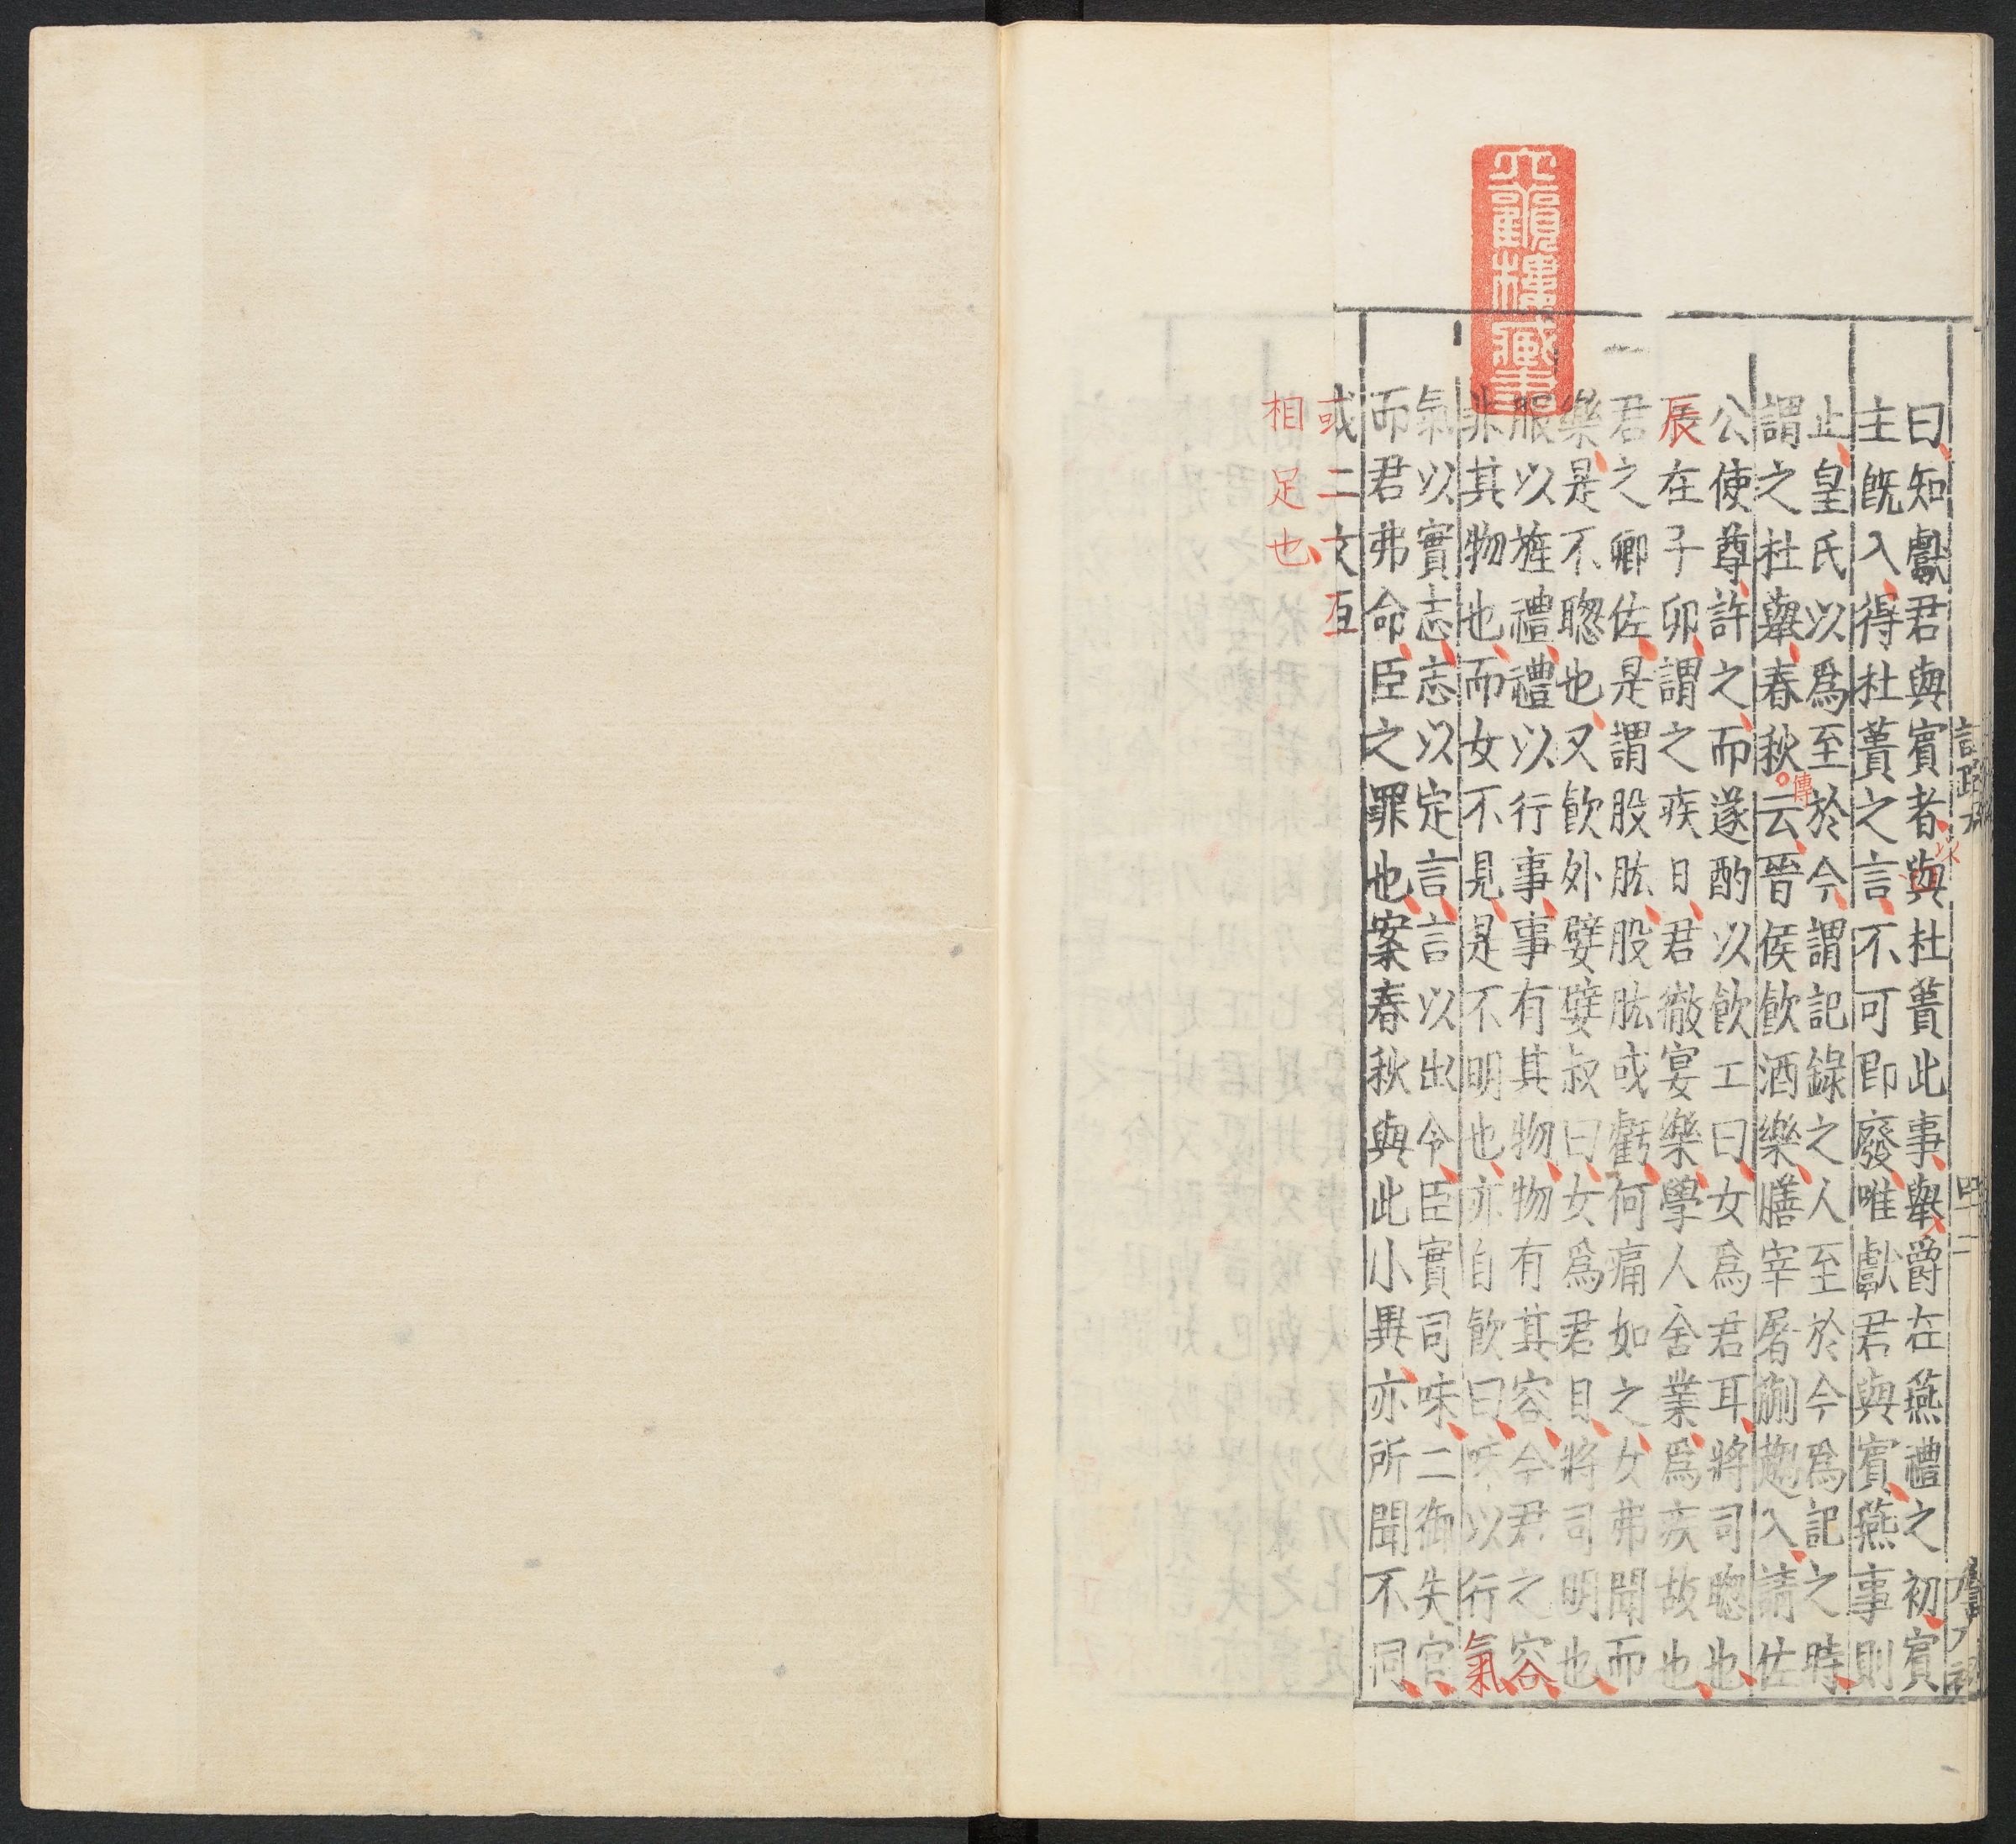 曰知獻君與賓者與杜蕢此事舉爵在燕禮之初賓
以
主旣入得杜蕢之言不可卽廢唯獻君與賓燕事則
止皇氏以爲至於今謂記錄之人至於今爲記之時
謂之杜舉春秋云晉侯飮酒樂膳宰屠蒯趨入請佐
傳
公使尊許之而遂酌以飮工曰女爲君耳將司聦也
辰在子卯謂之疾日君徹宴樂學人舍業爲疾故也
君之卿佐是謂股肱股肱或虧何痛如之女弗聞而
樂是不聦也又飮外嬖嬖叔曰女爲君目將司明也
服以旌禮禮以行事事有其物物有其容今君之容
非其物也而女不見是不明也亦自飮曰味以行氣
氣以實志志以定言言以出令臣實司味二御失官
而君弗命臣之罪也案春秋與此小異亦所聞不同
或二文互
相足也